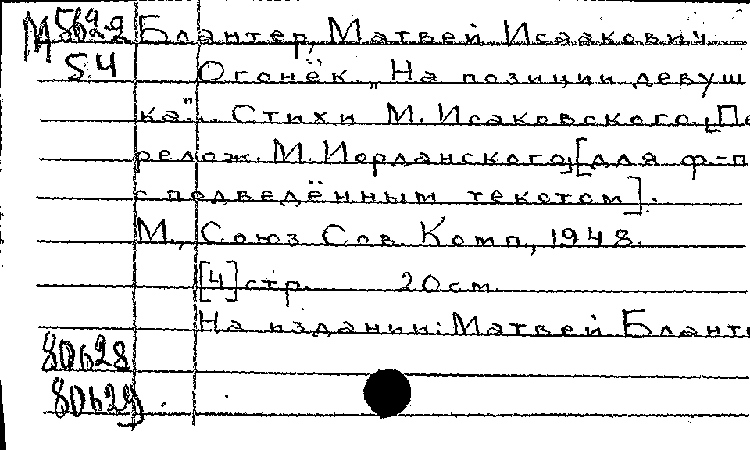 М 5622 Блантер, Матвей Исаакович
54 Огонёк. „На позиции девуш
ка". Стихи М. Исаковского, [Пе
релож. М. Иорданского] [для ф-п
с подведённым текстом].
М., Союз Сов. Комп., 1948.
[4] стр. 20 см.
На издании: Матвей Блант
80628
80629